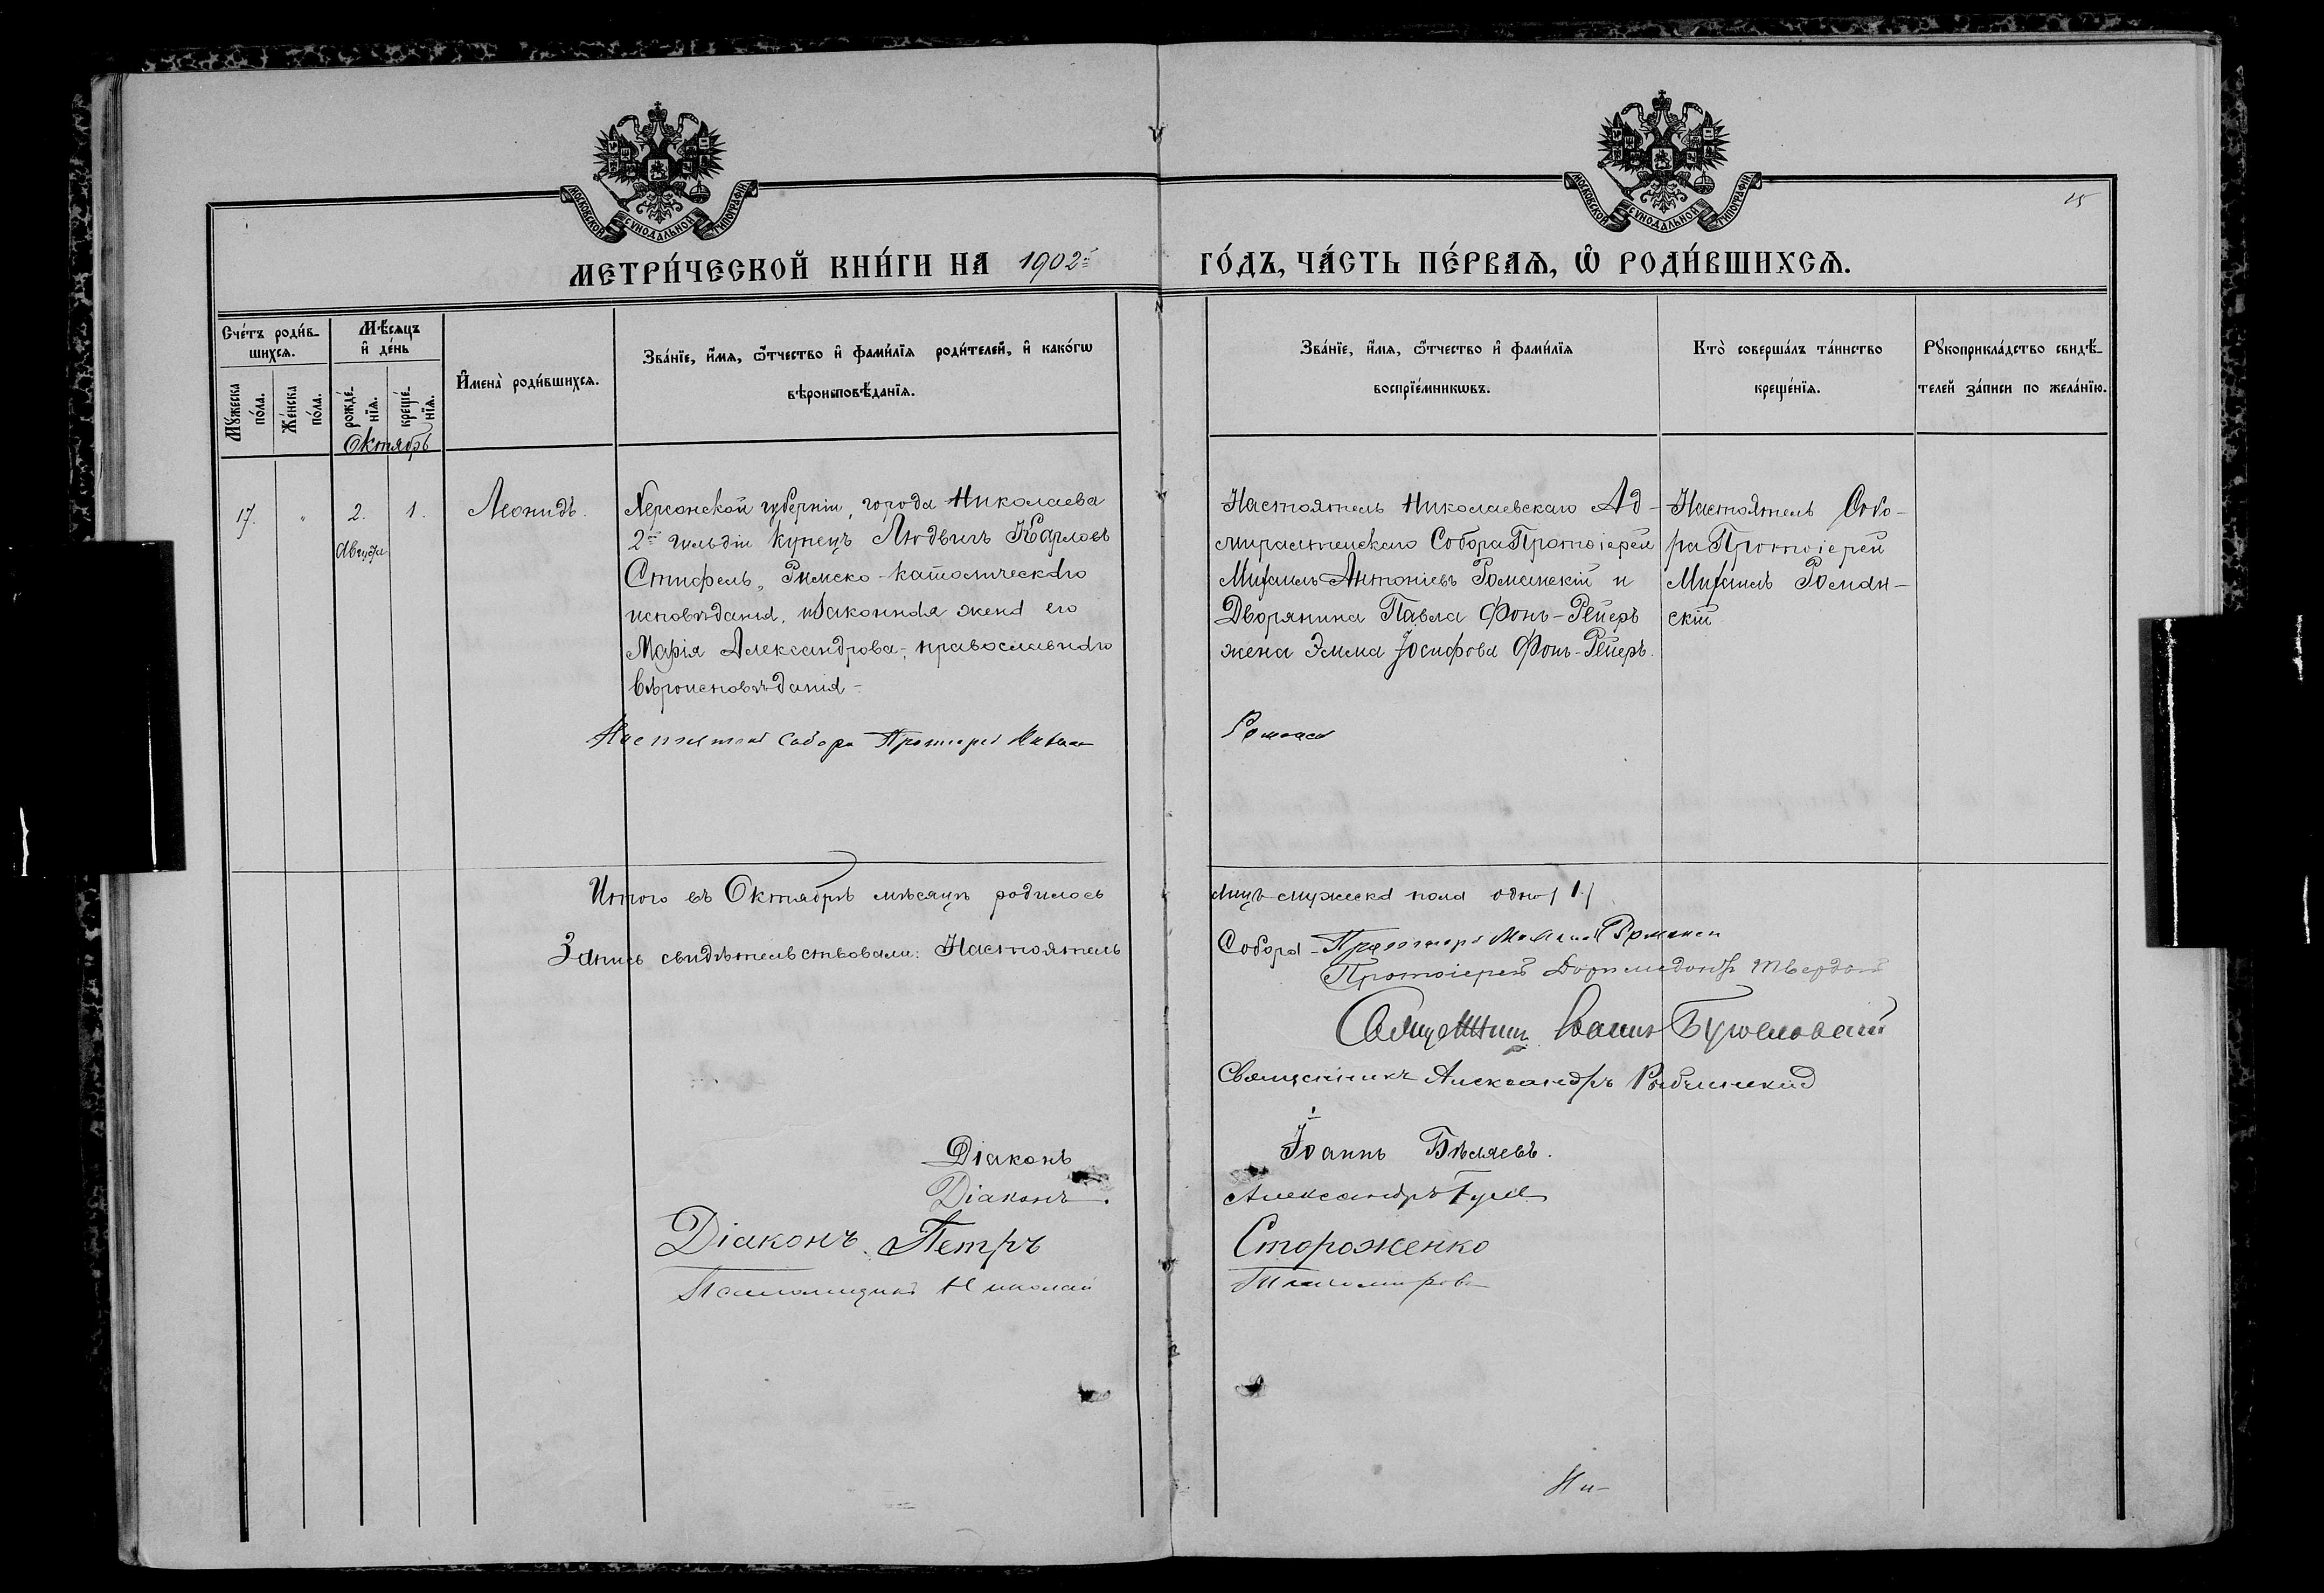 МОСКОВСКОЙ СѴНОДАЛЬНОЙ ТИПОГРАФІИ
МОСКОВСКОЙ СѴНОДАЛЬНОЙ ТИПОГРАФІИ
15
МЕТРИ́ЧЕСКОЙ КНИ́ГИ НА 1902 й
ГО́ДЪ, ЧА́СТЬ ПЕ́РВАѦ, Ѡ҆ РОДИ́ВШИХСѦ.
Сче́тъ роди́в-
шихсѧ.
Мꙋ́жеска
по́ла.
Же́нска
по́ла.
Мѣ́сѧцъ
и҆ де́нь
рожде́-
нїѧ.
креще́-
нїѧ.
Октябрь
И҆мена̀ роди́вшихсѧ.
Зва́нїе, и҆́мѧ, ѻ҆́тчество и҆ фами́лїѧ роди́телей, и҆ како́гѡ
вѣроисповѣ́данїѧ.
Зва́нїе, и҆́мѧ, ѻ҆́тчество и҆ фами́лїѧ
воспрїе́мникѡвъ.
Кто̀ соверша́лъ та́инство
креще́нїѧ.
Рꙋкоприкла́дство свидѣ́-
телей за́писи по жела́нїю.
17.
"
2.
Августа
1.
Леонидъ.
Херсонской губерніи, города Николаева
2й гильдіи купецъ Людвигъ Карловъ
Стифель, Римско-католическаго
исповѣданія, и законная жена его
Марія Александрова, православнаго
вѣроисповѣданія.
Настоятель Николаевскаго Ад-
миралтейскаго Собора Протоіерей
Михаилъ Антоніевъ Романскій и
Дворянина Павла Фонъ-Рейеръ
жена Эмма Іосифова Фонъ-Рейеръ.
Настоятель Собо-
ра Протоіерей
Михаилъ Роман-
скій
Настоятель Собора Протоіерей Михаилъ
Итого въ Октябрѣ мѣсяцѣ родилось
лицъ мужеска пола одно (1)
Запись свидѣтельствовали: Настоятель
Собора Протоіерей Михаилъ
Протоіерей
Священникъ Іоаннъ
Священникъ Александръ
Діаконъ
Іоаннъ Бѣляевъ.
Діаконъ
Александръ
Діаконъ Петръ
Стороженко
Псаломщикъ Николай
Тихомировъ
Ни-